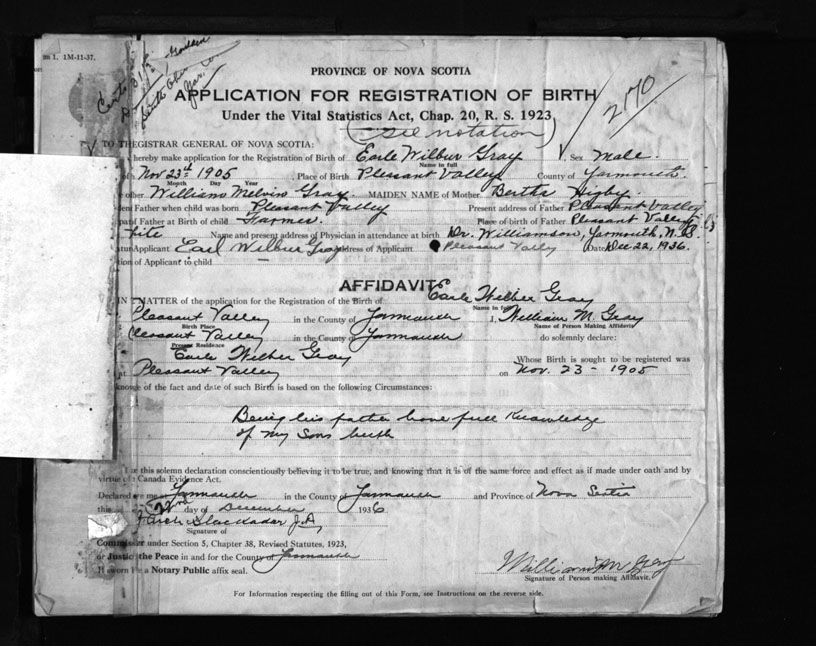 m 1, 1M-11-37.
PROVINCE OF NOVA SCOTIA
APPLICATION FOR REGISTRATION OF BIRTH
Under the Vital Statistics Act, Chap. 20, R. S. 1923
(See notation)
2170
TO THE GISTRAR GENERAL OF NOVA SCOTIA:
hereby make application for the Registration of Birth of Earle Wilbur Gray, Sex Male.
Name in full
Nov 23rd 1905, Place of Birth Pleasant Valley County of Yarmouth.
Month Day Year
William Melvin Gray MAIDEN NAME of Mother Bertha Higby.
Father when child was born Pleasant Valley Present address of Father Pleasant Valley
Father at Birth of child Farmer. Place of birth of Father Pleasant Valley
Name and present address of Physician in attendance at birth Dr. Williamson, Yarmouth, N.S.
Applicant Earl Wilbur Gray address of Applicant Pleasant Valley Date Dec 22, 1936.
tion of Applicant to child
AFFIDAVIT
IN MATTER of the application for the Registration of the Birth of Earle Wilber Gray
Name in full
Pleasant Valley in the County of Yarmouth I, William M. Gray
Birth Place Name of Person Making Affidavit
Pleasant Valley in the County of Yarmouth do solemnly declare:
Present Residence
Earle Wilber Gray Whose Birth is sought to be registered was
at Pleasant Valley on Nov. 23 - 1905
of the fact and date of such Birth is based on the following Circumstances:
Being his father have full Knowledge
of my Sons birth
this solemn declaration conscientiously believing it to be true, and knowing that it is of the same force and effect as if made under oath and by
virtue of Canada Evidence Act.
Declared me at Yarmouth in the County of Yarmouth and Province of Nova Scotia
this 22nd day of December 1936
J.P.
Signature of
under Section 5, Chapter 38, Revised Statutes, 1923,
or Justice the Peace in and for the County of Yarmouth
If sworn a Notary Public affix seal.
William M Gray
Signature of Person making Affidavit.
For Information respecting the filling out of this Form, see Instructions on the reverse side.